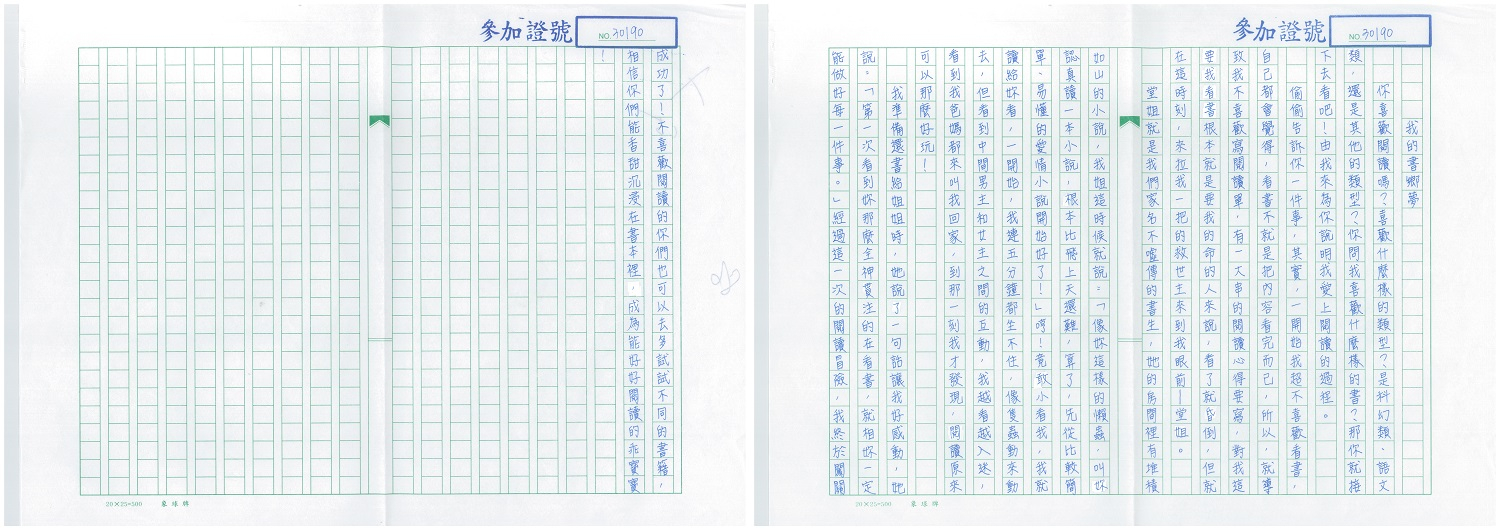 參加證號
NO. 30190
我的書鄉夢
你喜歡閱讀嗎?喜歡什麼樣的類型?是科幻類、語文
類,還是其他的類型?你問我喜歡什麼樣的書?那你就接
下去看吧!由我來為你說明我愛上閱讀的過程。
偷偷告訴你一件事,其實,一開始我超不喜歡看書,
自己都會覺得,看書不就是把內容看完而已,所以,就導
致我不喜歡寫閱讀單,有一大串的閱讀心得要寫,對我這
要我看書根本就是要我的命的人來說,看了就昏倒,但就
在這時刻,來拉我一把的救世主來到我眼前—堂姐。
堂姐就是我們家名不虛傳的書生,她的房間裡有堆積
如山的小說,我姐這時候就說:「像妳這樣的懶蟲,叫妳
認真讀一本小說,根本比飛上天還難,算了,先從比較簡
單、易懂的愛情小說開始好了!」哼!竟敢小看我,我就
讀給妳看,一開始,我連五分鐘都坐不住,像隻蟲動來動
去,但看到中間男主和女主之間的互動,我越看越入迷,
看到我爸媽都來叫我回家,到那一刻我才發現,閱讀原來
可以那麼好玩!
我準備還書給姐姐時,她說了一句話讓我好感動,她
說:「第一次看到妳那麼全神貫注的在看書,就相妳一定
能做好每一件事。」經過這一次的閱讀冒險,我終於闖關
參加證號
NO. 30190
成功了!不喜歡閱讀的你們也可以去多試試不同的書籍,
相信你們能香甜沉浸在書本裡,成為能好好閱讀的乖寶寶
!
20×25=500 象球牌
20×25=500 象球牌